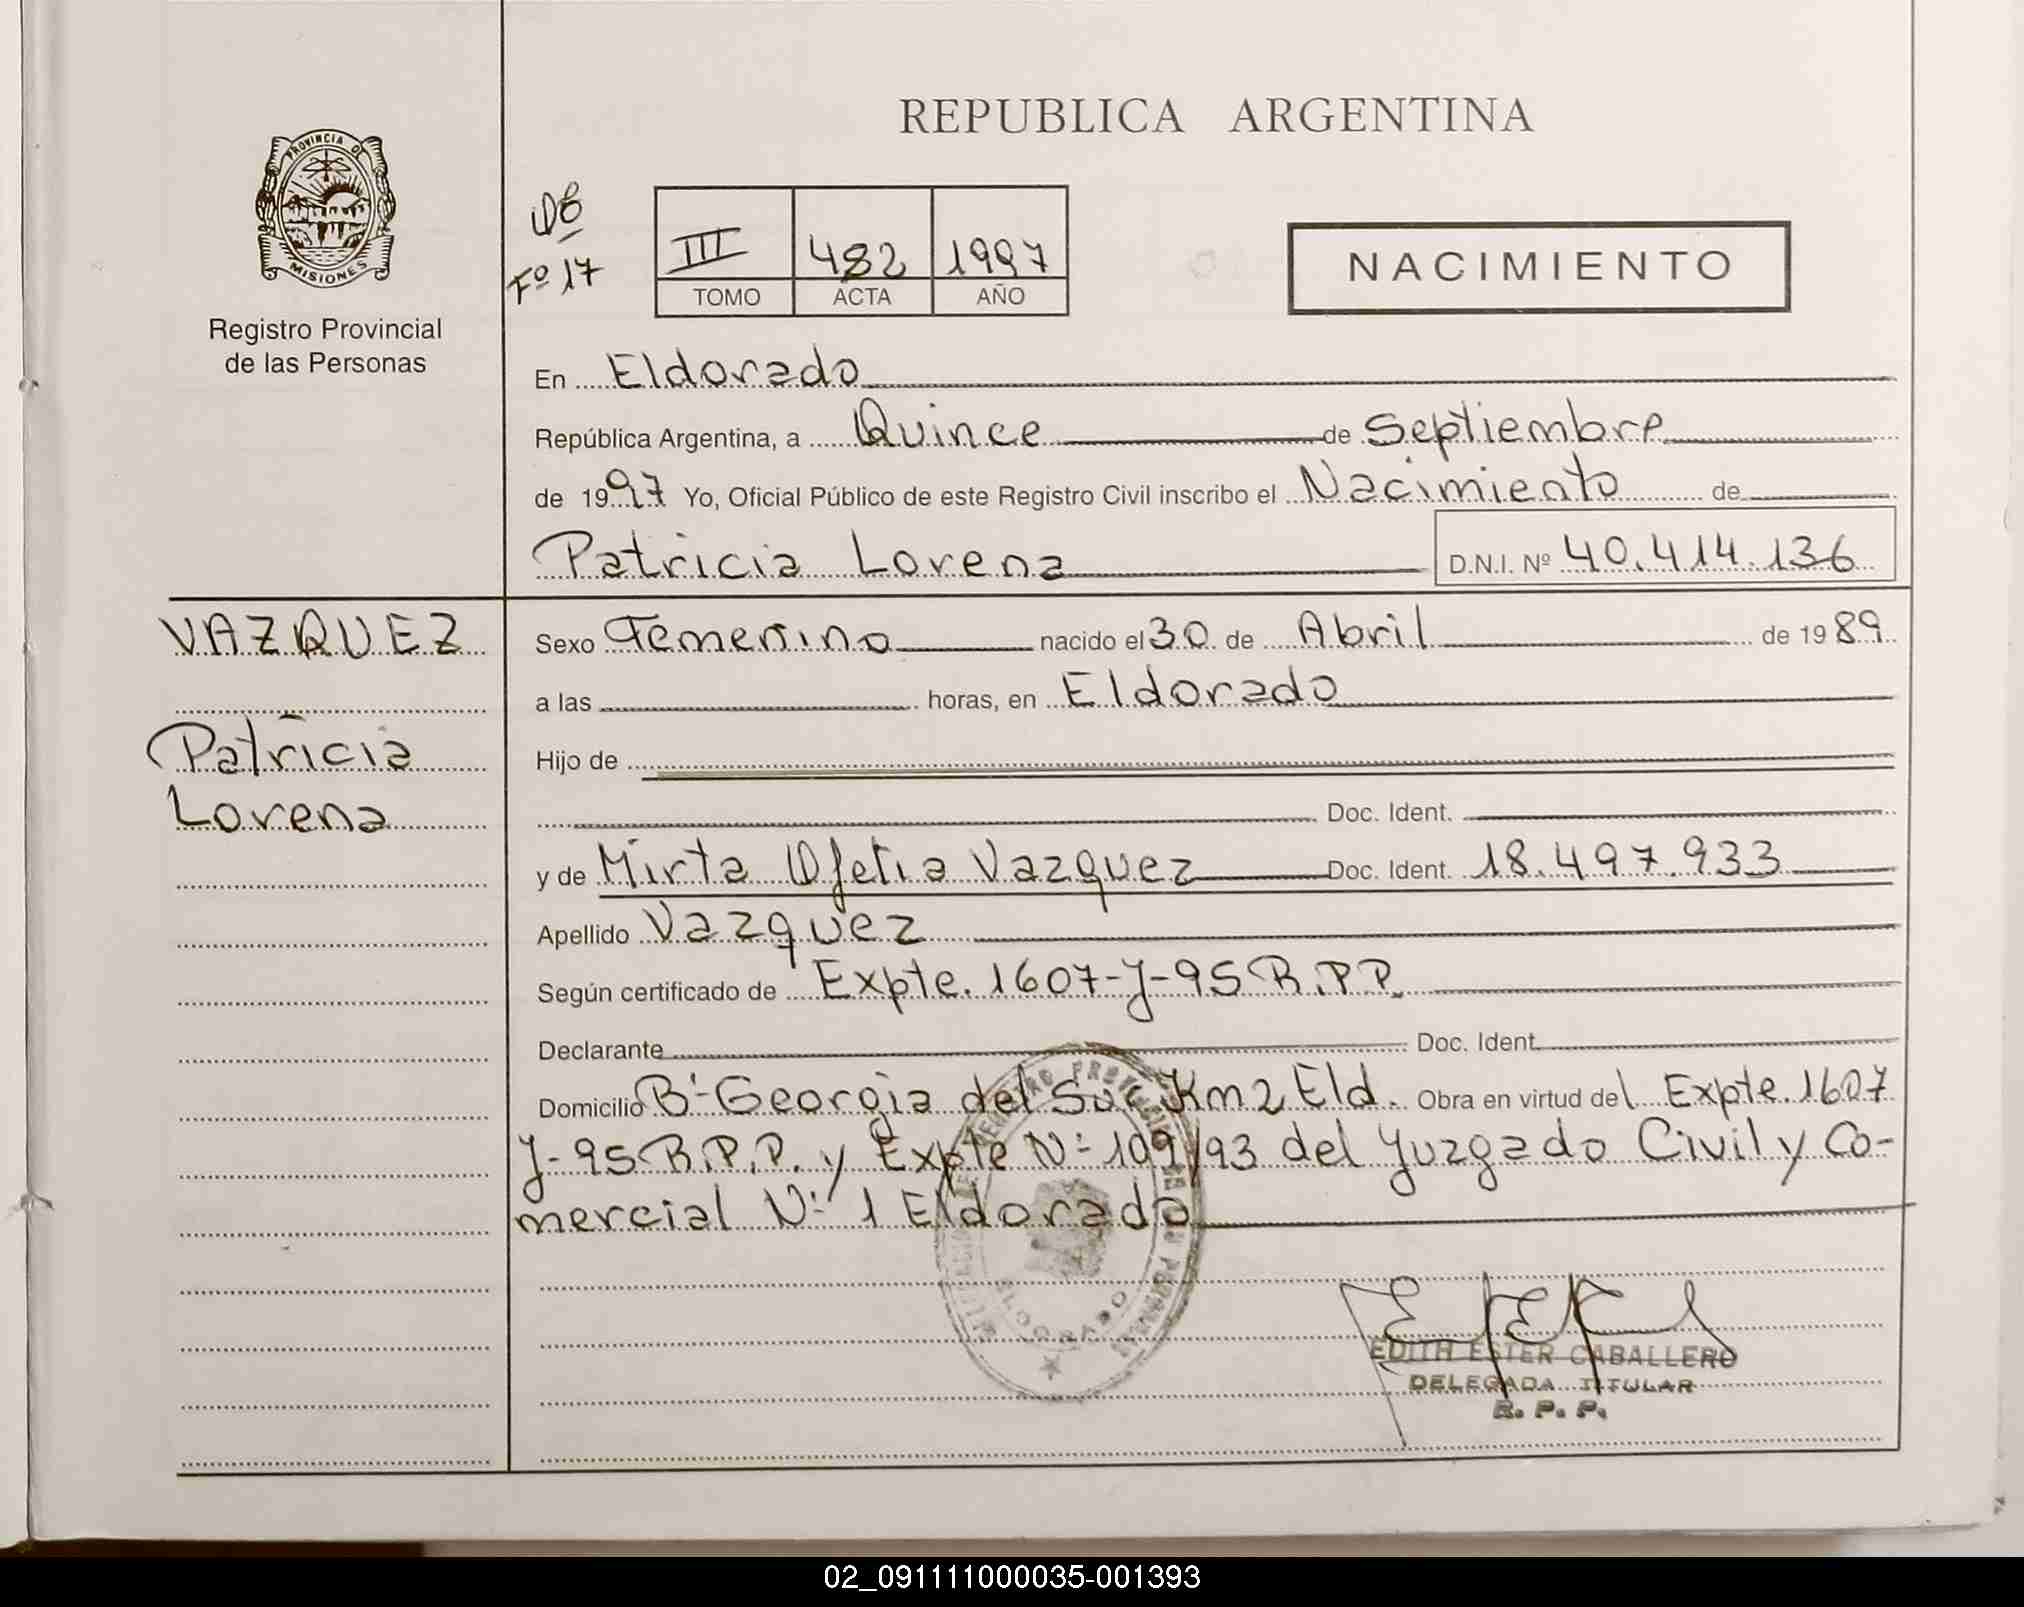 REPUBLICA ARGENTINA
PROVINCIA DE
MISIONES
Registro Provincial
de las Personas
Fº 17
III 482 1997
TOMO ACTA AÑO
NACIMIENTO
En Eldorado
República Argentina, a Quince de Septiembre
de 1997 Yo, Oficial Público de este Registro Civil inscribo el Nacimiento de
Patricia Lorena D.N.I. Nº 40.414.136
VAZQUEZ
Patricia
Lorena
Sexo Femenino nacido el 30 de Abril de 1989
a las horas, en Eldorado
Hijo de
Doc. Ident.
y de Mirta Ofelia Vazquez Doc. Ident. 18.497.933
Apellido Vazquez
Según certificado de Expte. 1607-J-95 R.P.P.
Declarante Doc. Ident.
Domicilio Bº Georgia del Sur Km 2 Eld. Obra en virtud del Expte. 1607
J-95 R.P.P. y Expte Nº 109/93 del Juzgado Civil y Co-
mercial Nº 1 Eldorado
ELDORADO
EDITH ESTER CABALLERO
DELEGADA TITULAR
R. P. P.
02_091111000035-001393